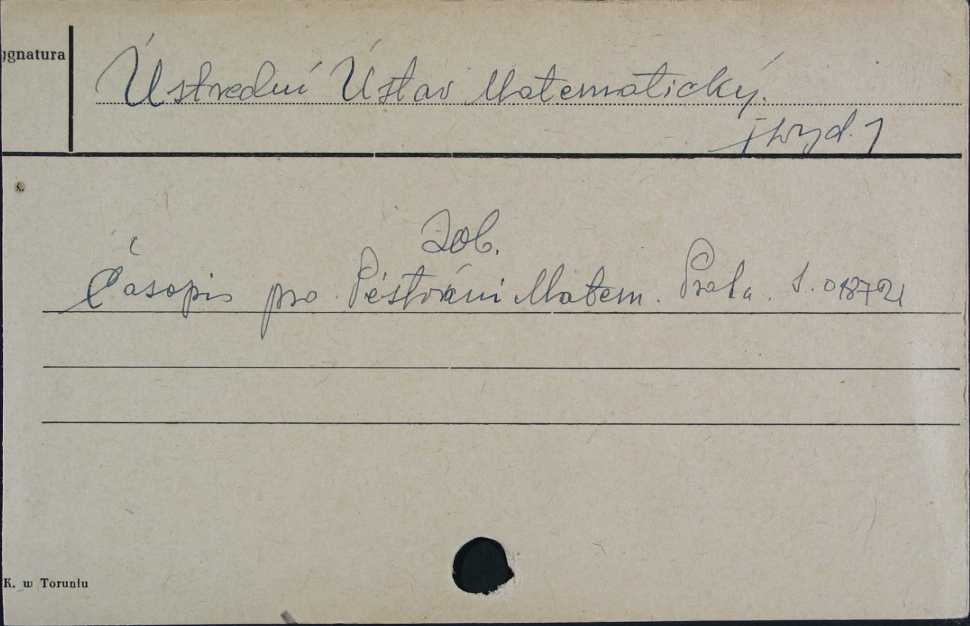 ygnatura
Ústredni Ústav Matematický.
[wyd.]
Zob.
Časopis pro Péstváni Matem. Praha. S. 01872
K. w Toruniu